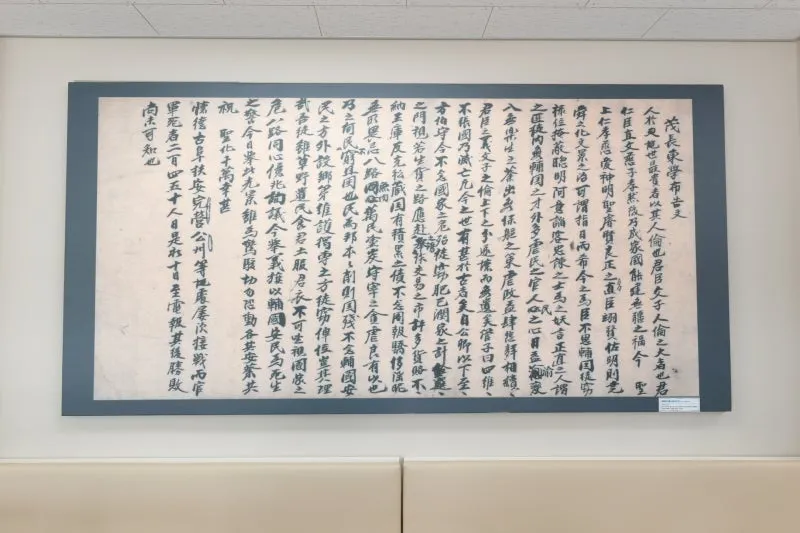 茂長東學布告文
人於世最貴者以其人倫也君臣父子人倫之大者也君
仁臣直父慈子孝然後乃成家國能逮無疆之福今 聖
上仁孝慈愛神明聖睿賢良正直之臣翊贊佑明則堯
舜之化文景之治可謂指日而希今之爲臣不思輔國徒窃
祿位掩蔽聰明阿意謟容忠諫之士爲之妖言正直之人謂
之匪徒內無輔國之才外多虐民之官人民之心日益渝変
入無樂生之業出無保軀之策虐政益肆怨聲相續〃
君臣之義父子之倫上下之分遂壞而無遺矣管子曰四維〃
不張國乃滅亡方今之世有甚於古者矣自公卿以下至〃
方伯守令不念國家之危殆徒窃肥己潤家之計銓選〃
之門視若生貨之路應赴擧試交易之市許多貨賂不〃
納王庫反充私藏國有積累之債不念用報驕侈淫昵
無所畏忌八路魚肉萬民塗炭守宰之貪虐良有以也
乃之何民窮且困也民爲邦本〃削則國殘不念輔國安
民之方外設鄕第維護獨專之方徒窃俸位豈其理
哉吾徒雖草野遺民食君土服君衣不可坐視國家之
危八路同心億兆詢議今擧義旗以輔國安民爲死生
之誓今日擧此光景雖爲驚駭切勿恐動各其安業共
祝 聖化千萬幸甚
德古阜扶安完營公州等地處屢次接戰而官
軍死者二百四五十人日是初十日至電報其後勝敗
尚未可知也